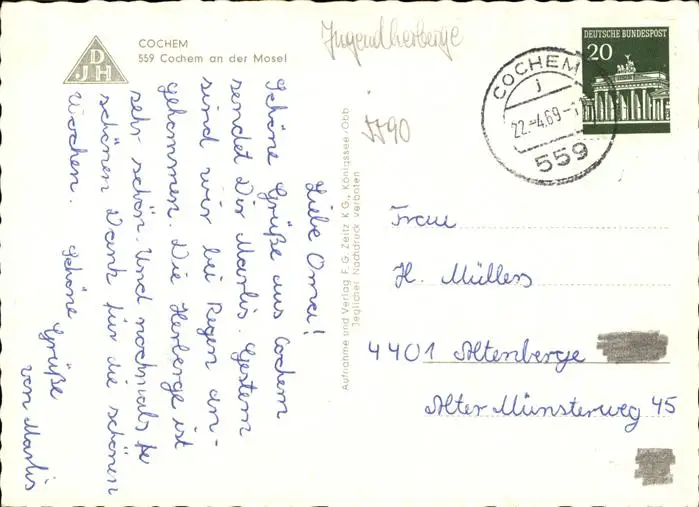 DJH
COCHEM
559 Cochem an der Mosel
Jugendherberge
DEUTSCHE BUNDESPOST
20
COCHEM
j
22.-4.69
559
Liebe Oma!
Schöne Grüße aus Cochem
sendet Dir Marlis. Gestern
sind wir bei Regen an-
gekommen. Die Herberge ist
sehr schön. Und nochmals
schönen Dank für die schönen
Wochen. Schöne Grüße
von Marlis
Aufnahme und Verlag F. G. Zeitz K G., Königssee/Obb
Jeglicher Nachdruck verboten
Frau
H. Müllers
4401 Altenberge
Alter Münsterweg 45